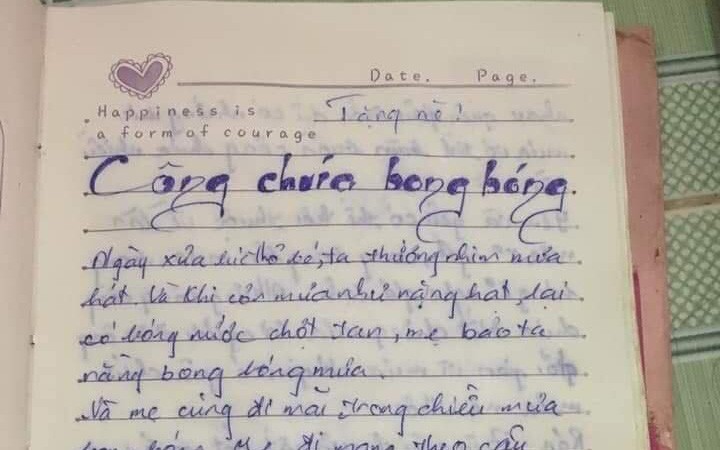 Date. Page.
Happiness is
a form of courage
Tặng nè!
Công chúa bong bóng.
Ngày xửa lúc thở bé, ta thường nhìn mưa
hát. Và khi cơn mưa như nặng hạt, lại
có bóng nước chợt tan, mẹ bảo ta
rằng bong bóng mưa.
Và mẹ cũng đi mãi, trong chiều mưa
bong bóng. Mẹ đi mang theo câu